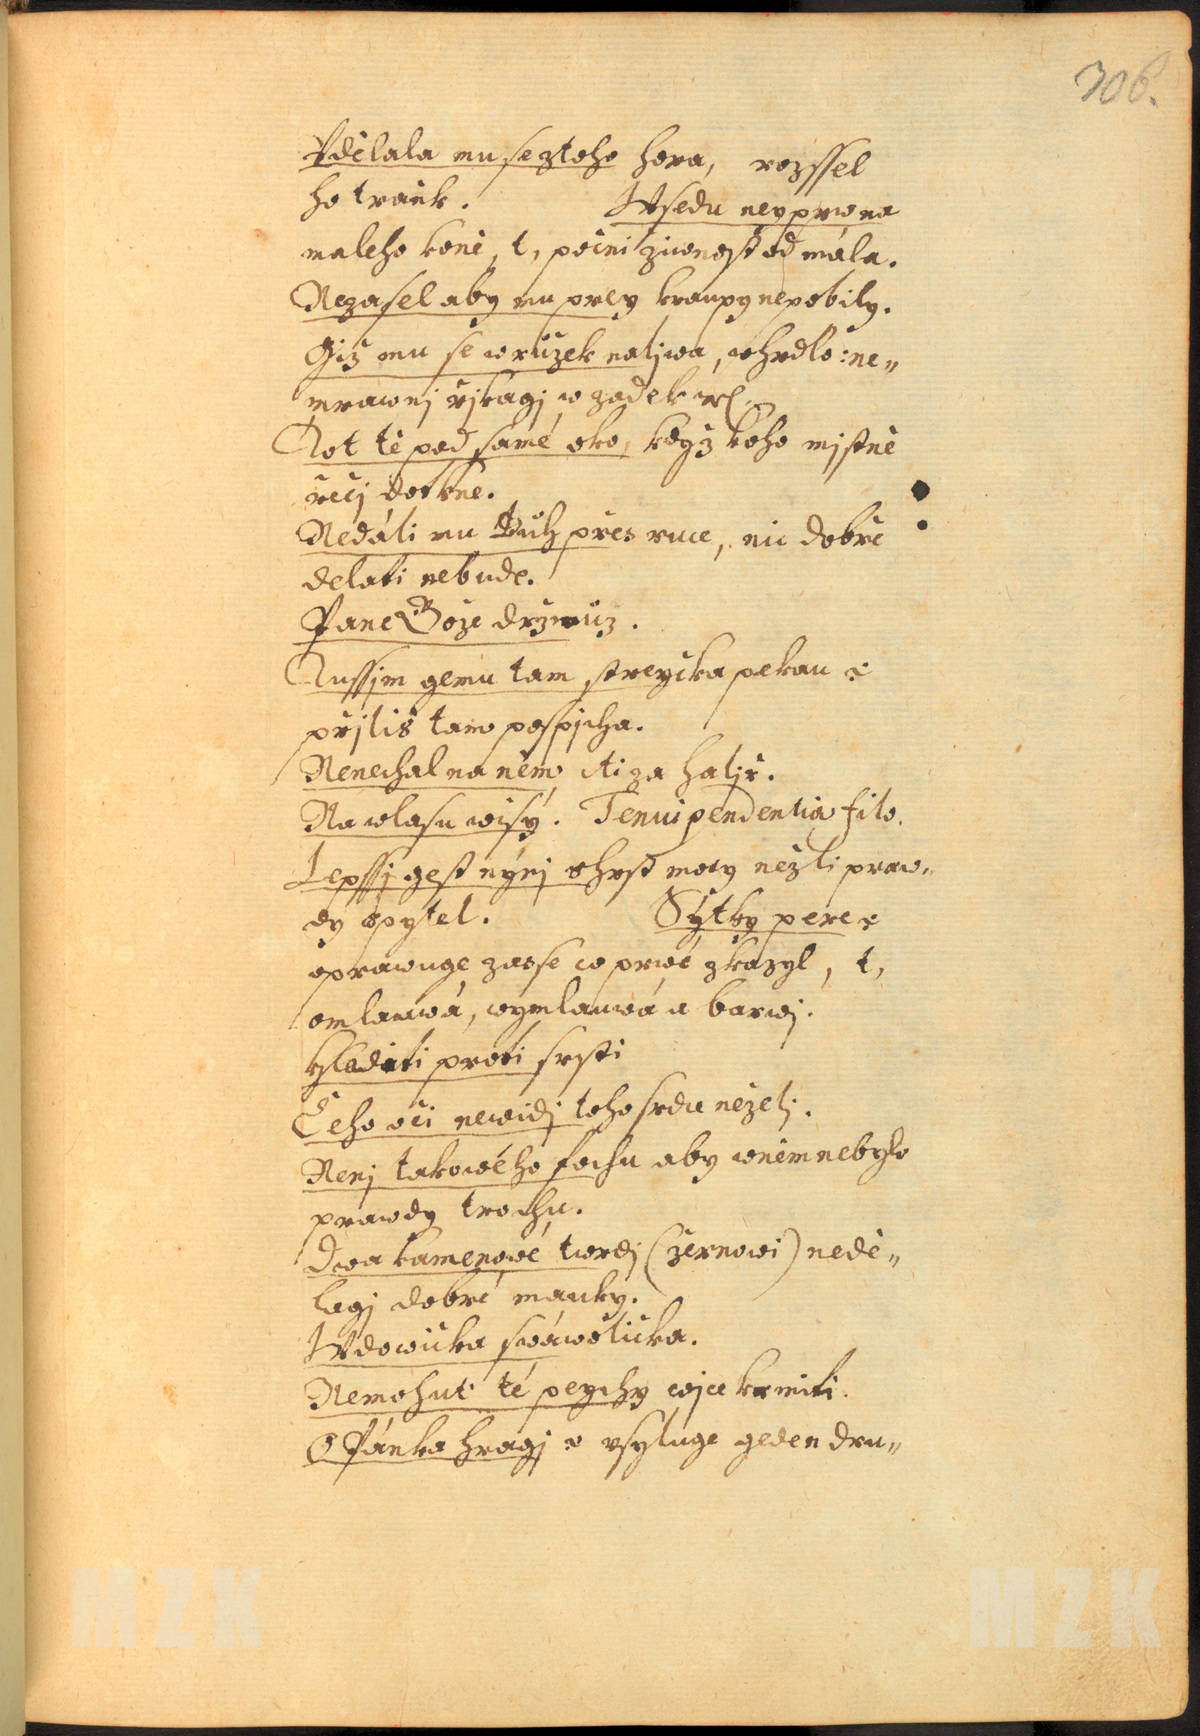 306.
Vdělala mu se z toho hora, rozssel
ho traňk. Wsedu neyprw na
maleho koně, t, počni žiwnost od mála.
Nezasel aby mu prey kraupy nepobily.
Giž mu se w růžek nalјwa, w hrdlo: ne„
mrawnj řjkagj w zadek
Aot tě pod samé oko, když koho mjstně
řečj dotkne.
Nedáli mu Buh přes ruce, nic dobře
delati nebude.
Pane Bože drž můž.
Aussjm gemu tam streyčka pekau :
přjliš tam pospjcha.
Nenechal na něm Ai za haljř.
Na wlasu wisý. Tenui pendentia filo.
Lepssj gest nynj hrst mocy nežli praw„
dy pytel. Sýtky pere :
oprawuge zasse co prwé zkazyl, t,
omlauwá, wymlauwá a barwj.
Hladiti proti srsti
Čeho oči newidj toho srdcu neželj.
Nenj takowého fochu aby w něm nebylo
prawdy trochu.
Dwa kamenowé twrdj (žernowi) nedě„
lagj dobré mauky.
Wdowička swáwolička.
Nemohuť té peychy wjce krmiti.
O Pánka hragj : vsyluge geden dru„
MZK
MZK